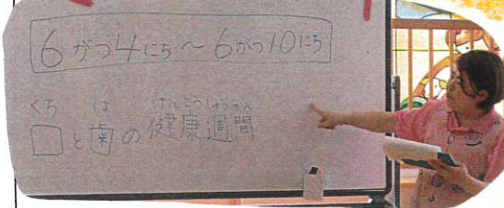 6がつ4にち～6がつ10にち
くち は けんこうしゅうかん
口と歯の健康週間